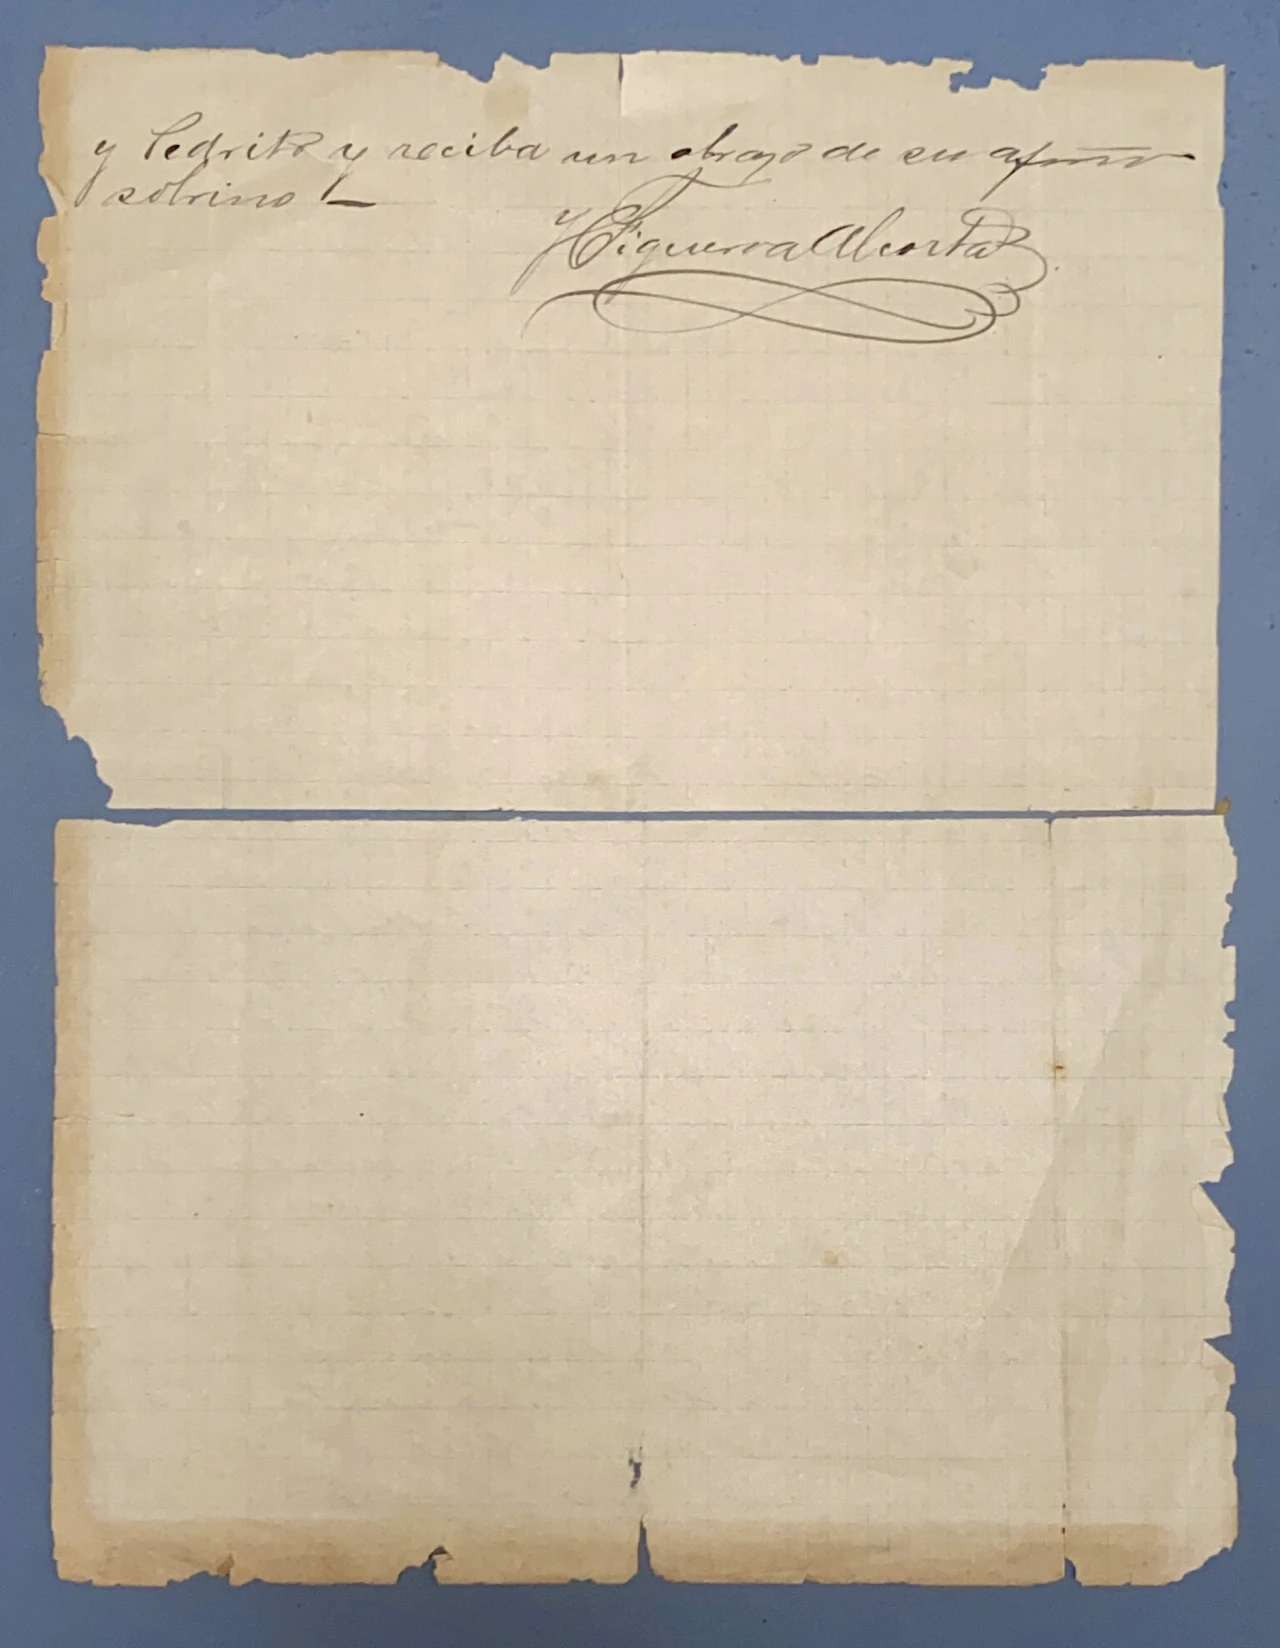 y Pedrito y reciba un abrazo de su afmo
sobrino
J Figueroa Alcorta